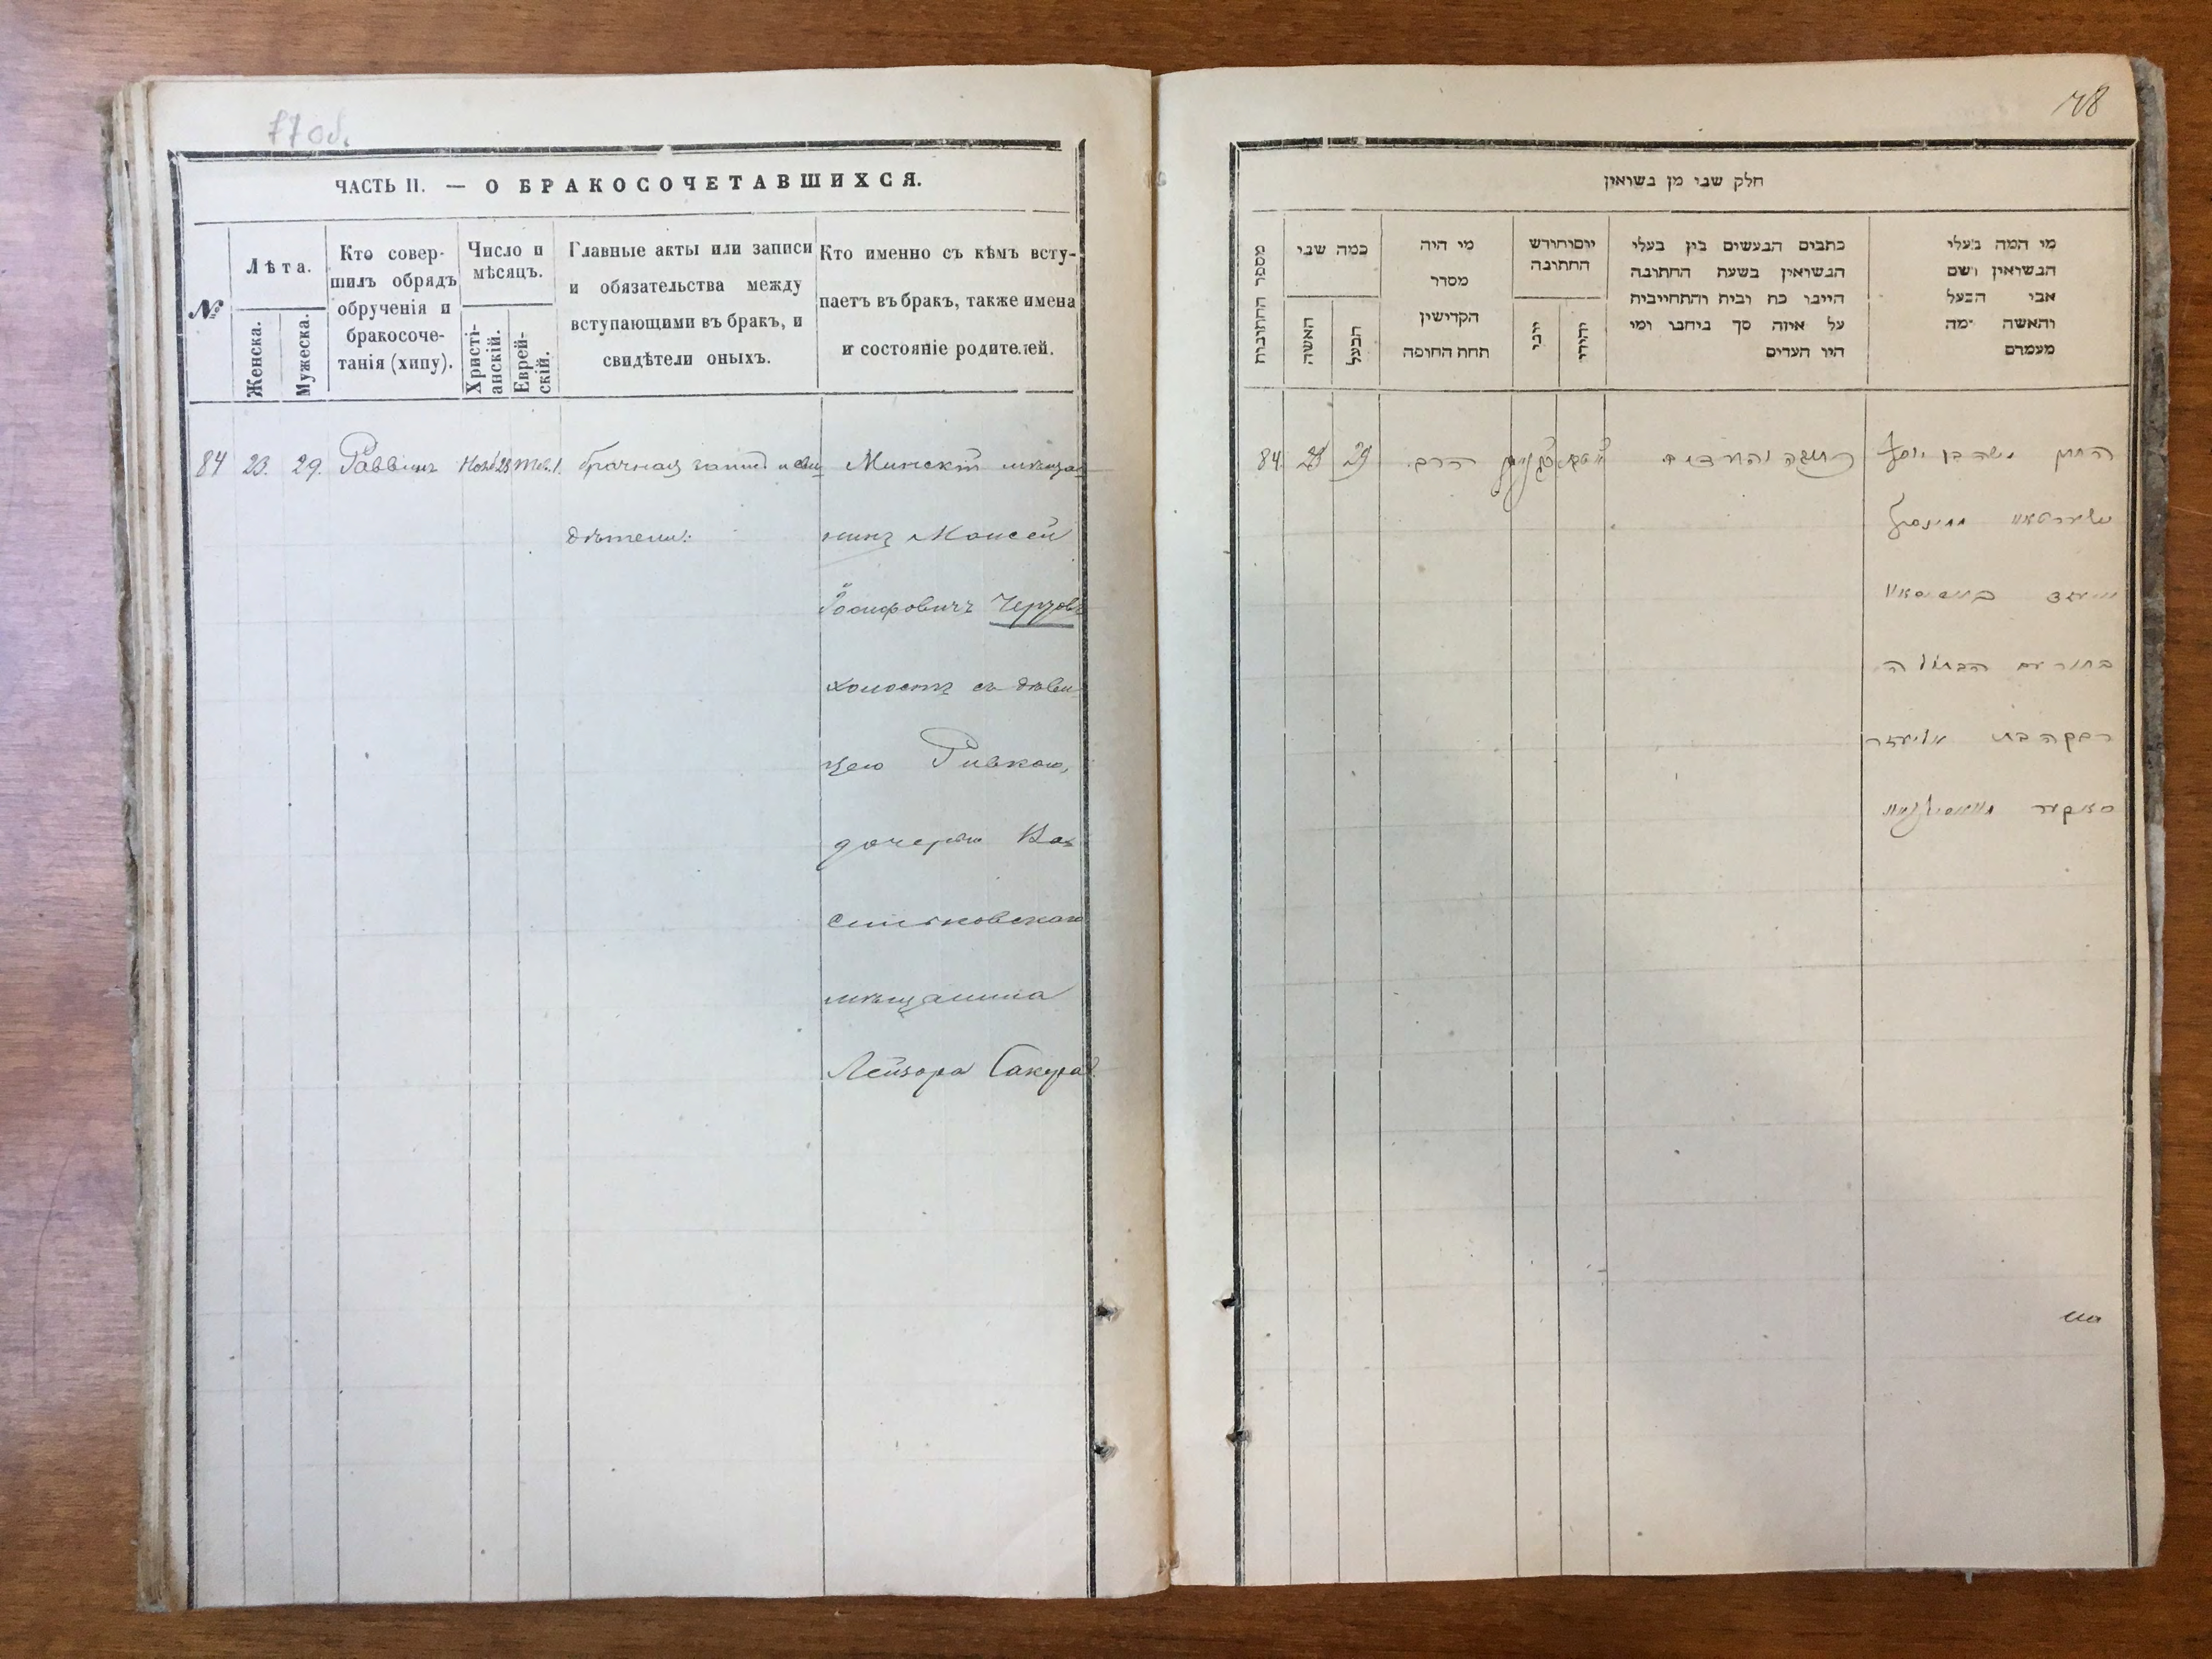 77 об.
ЧАСТЬ II. — О БРАКОСОЧЕТАВШИХСЯ.
№
Лѣта.
Женска.
Мужеска.
Кто совер-
шилъ обрядъ
обрученія и
бракосоче-
танія (хипу).
Число и
мѣсяцъ.
Христі-
анскій.
Еврей-
скій.
Главные акты или записи
и обязательства между
вступающими въ бракъ, и
свидѣтели оныхъ.
Кто именно съ кѣмъ всту-
паетъ въ бракъ, также имена
и состояніе родителей.
84 23. 29. Раввинъ Нояб 28 Тев. 1. брачная запис и сви-
дѣтели:
Минскій мѣща-
нинъ Моисей
Іосифовичъ
холостъ съ дѣви-
цею Ривкою,
дочерью Ва-
сильковскаго
мѣщанина
Лейзора Сакера
78
חלק שני מן נשואין
מספר החתונות
כמה שני
האשה
הבעל
מי היה
מסדר
הקדישין
תחת החופה
יוםוחודש
החתונה
יוני
יהודי
כתבים הנעשים בין בעלי
הנשואין בשעת החתונה
היינו כת ובית והתחייבית
על איזה סך ביחבו ומי
היו העדים
מי המה בעלי
הנשואין ושם
אבי הבעל
והאשה ומה
מעמדם
84. 23 29 הרב
החתן משה בן יוסף
בחור עם הבתולה
רבקה בת אליעזר